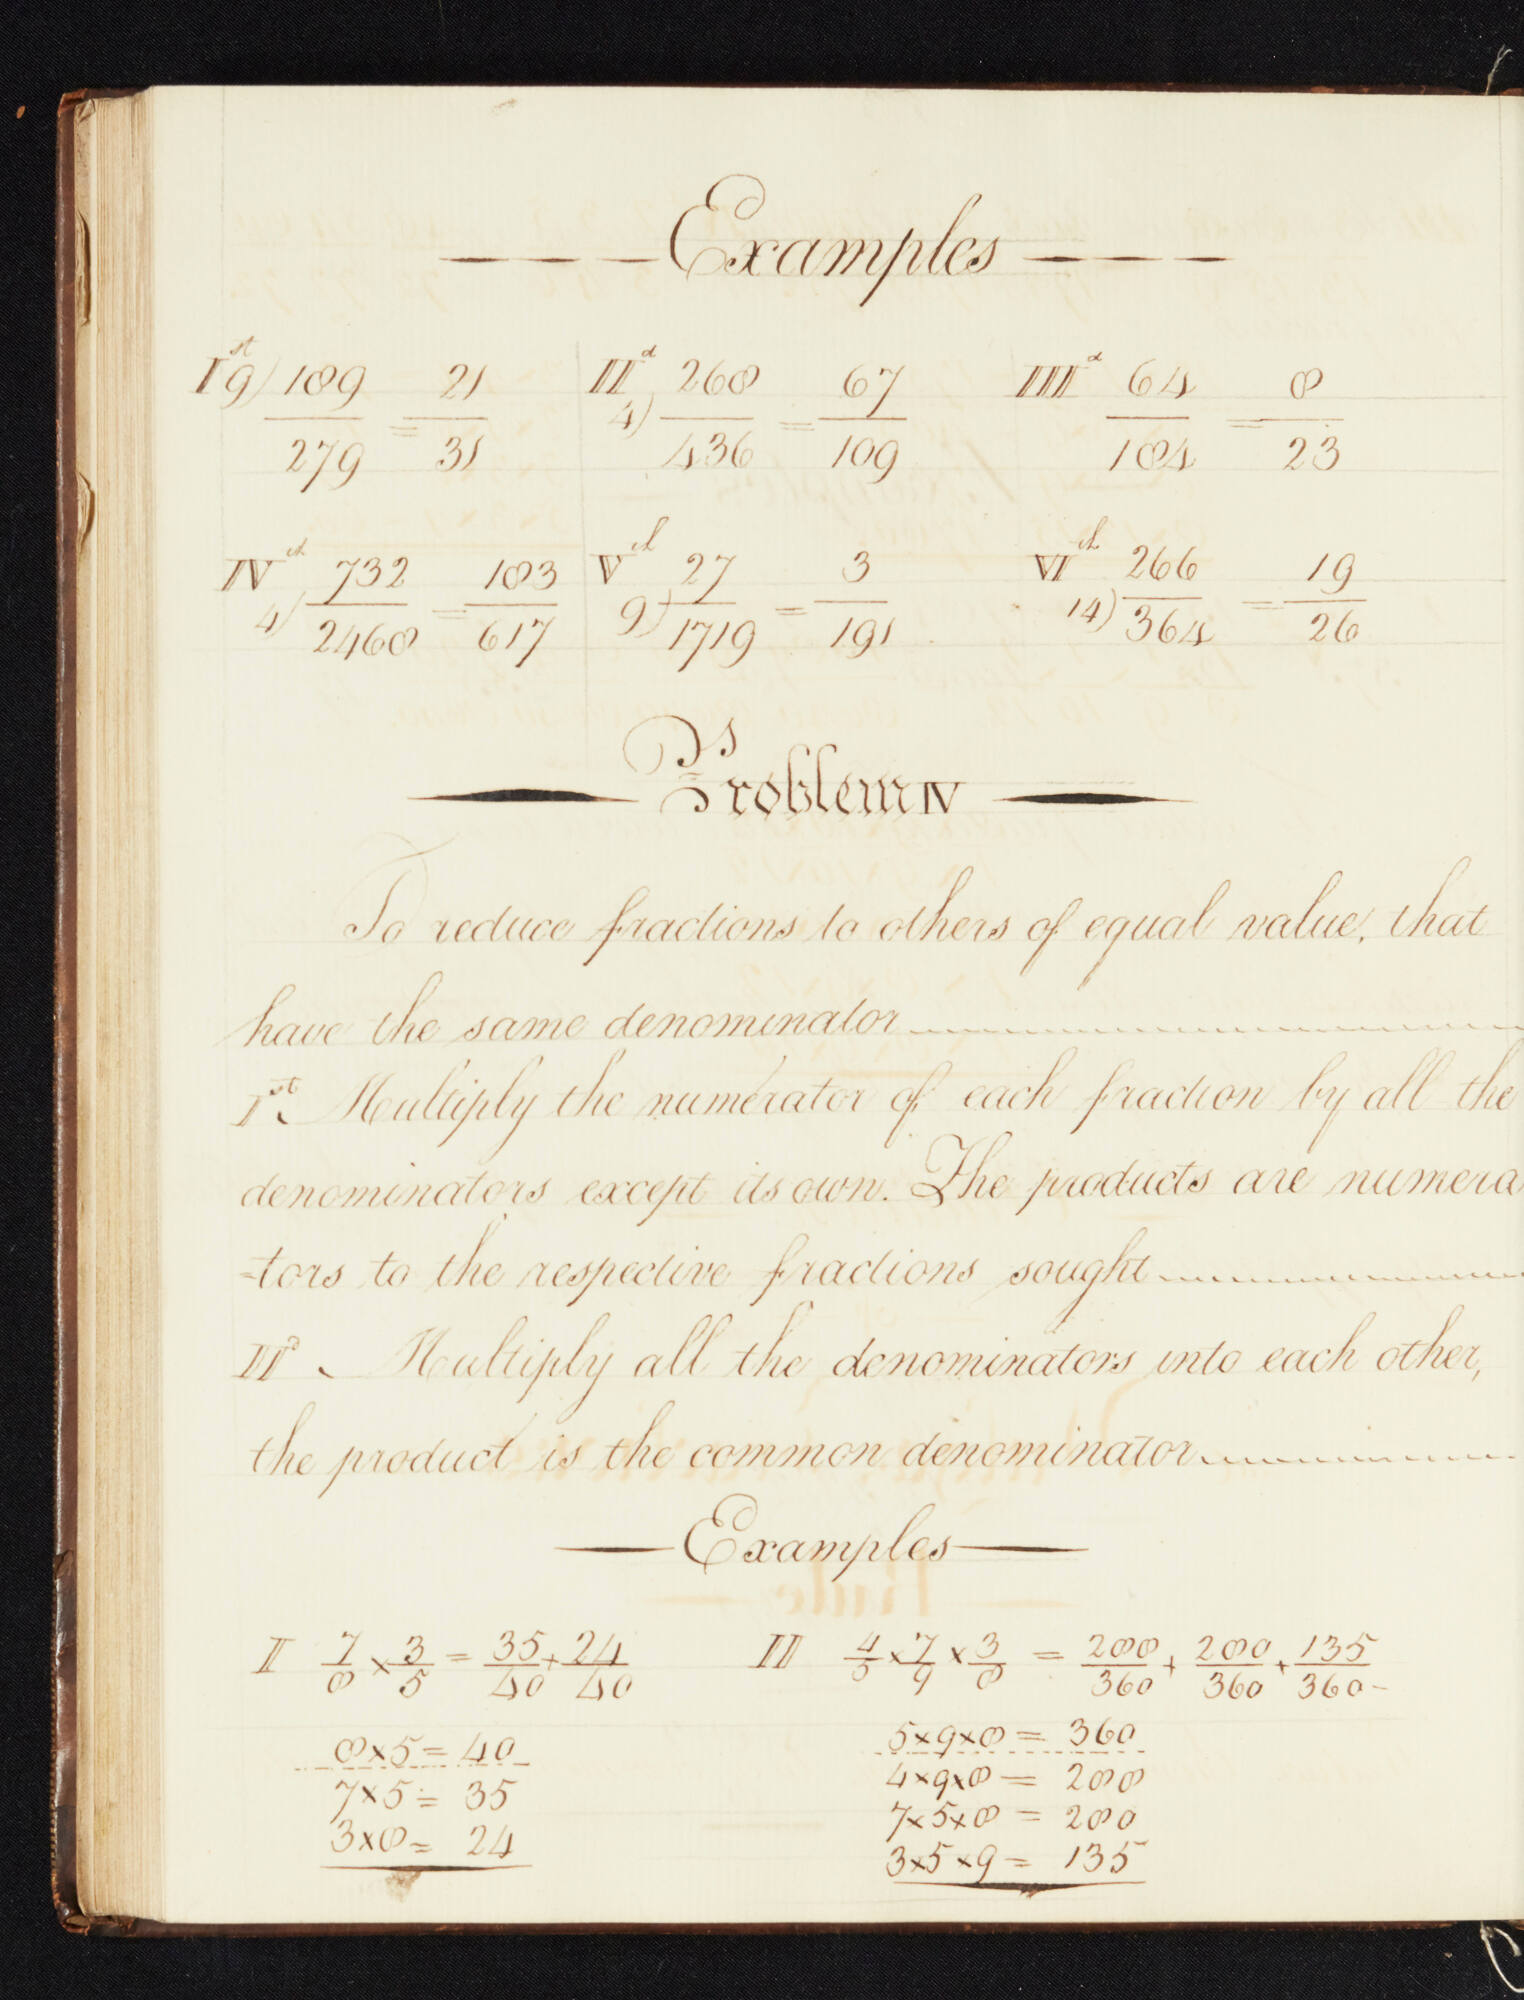 — — — Examples — — —
Ist 9) 189/279 = 21/31 IId 4) 268/436 = 67/109 IIId 64/184 = 8/23
IVth 4) 732/2468 = 183/617 Vth 9) 27/1719 = 3/191 VIth 14) 266/364 = 19/26
Problem IV
To reduce fractions to others of equal value, that
have the same denominator
Ist. Multiply the numerator of each fraction by all the
denominators except its own. The products are numera
-tors to the respective fractions sought
IId. Multiply all the denominators into each other,
the product is the common denominator
— Examples —
I 7/8 × 3/5 = 35/40 + 24/40 II 4/5 × 7/9 × 3/8 = 288/360 + 280/360 + 135/360
8×5 = 40 5×9×8 = 360
7×5 = 35 4×9×8 = 288
3×8 = 24 7×5×8 = 280
3×5×9 = 135